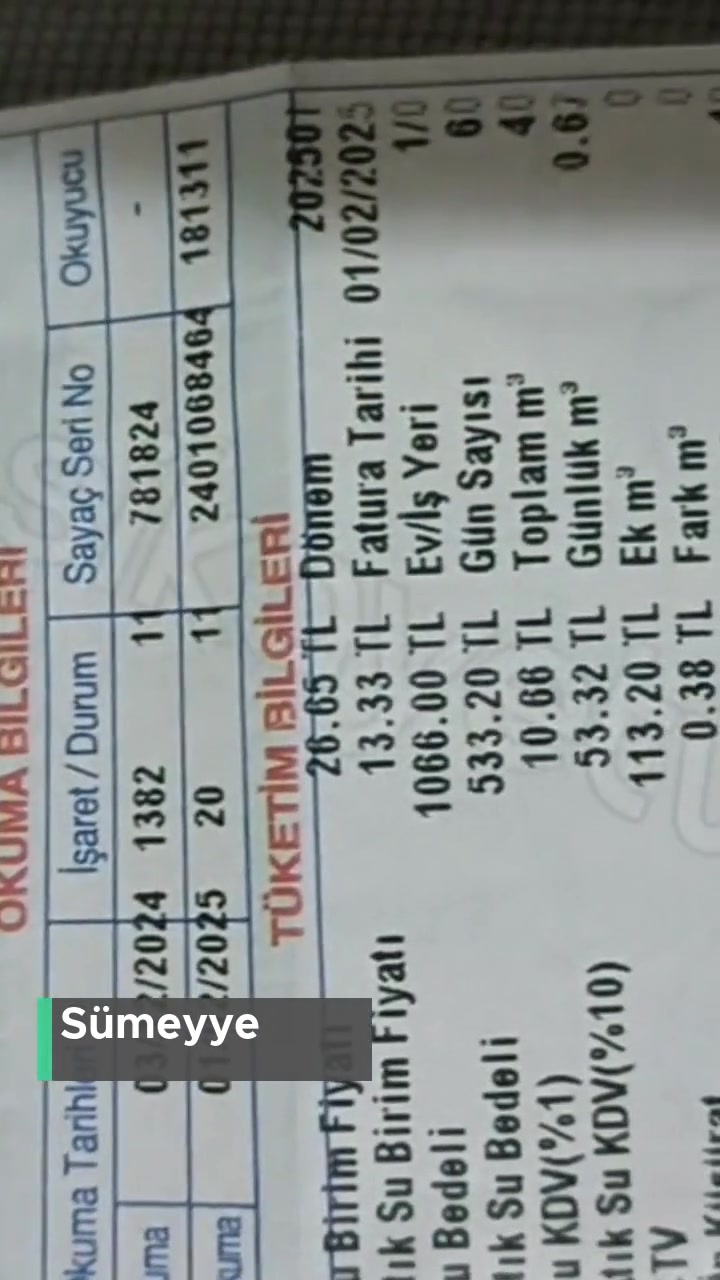 OKUMA BİLGİLERİ
kuma Tarihleri İşaret / Durum Sayaç Seri No Okuyucu
uma 03 2/2024 1382 11 781824 -
kuma 01 2/2025 20 11 2401068464 181311
TÜKETİM BİLGİLERİ
u Birim Fiyatı 26.65 TL Dönem 202501
tık Su Birim Fiyatı 13.33 TL Fatura Tarihi 01/02/2025
u Bedeli 1066.00 TL Ev/İş Yeri 1/0
tık Su Bedeli 533.20 TL Gün Sayısı 60
u KDV(%1) 10.66 TL Toplam m³ 40
tık Su KDV(%10) 53.32 TL Günlük m³ 0.67
TV 113.20 TL Ek m³ 0
0.38 TL Fark m³ 0
Sümeyye